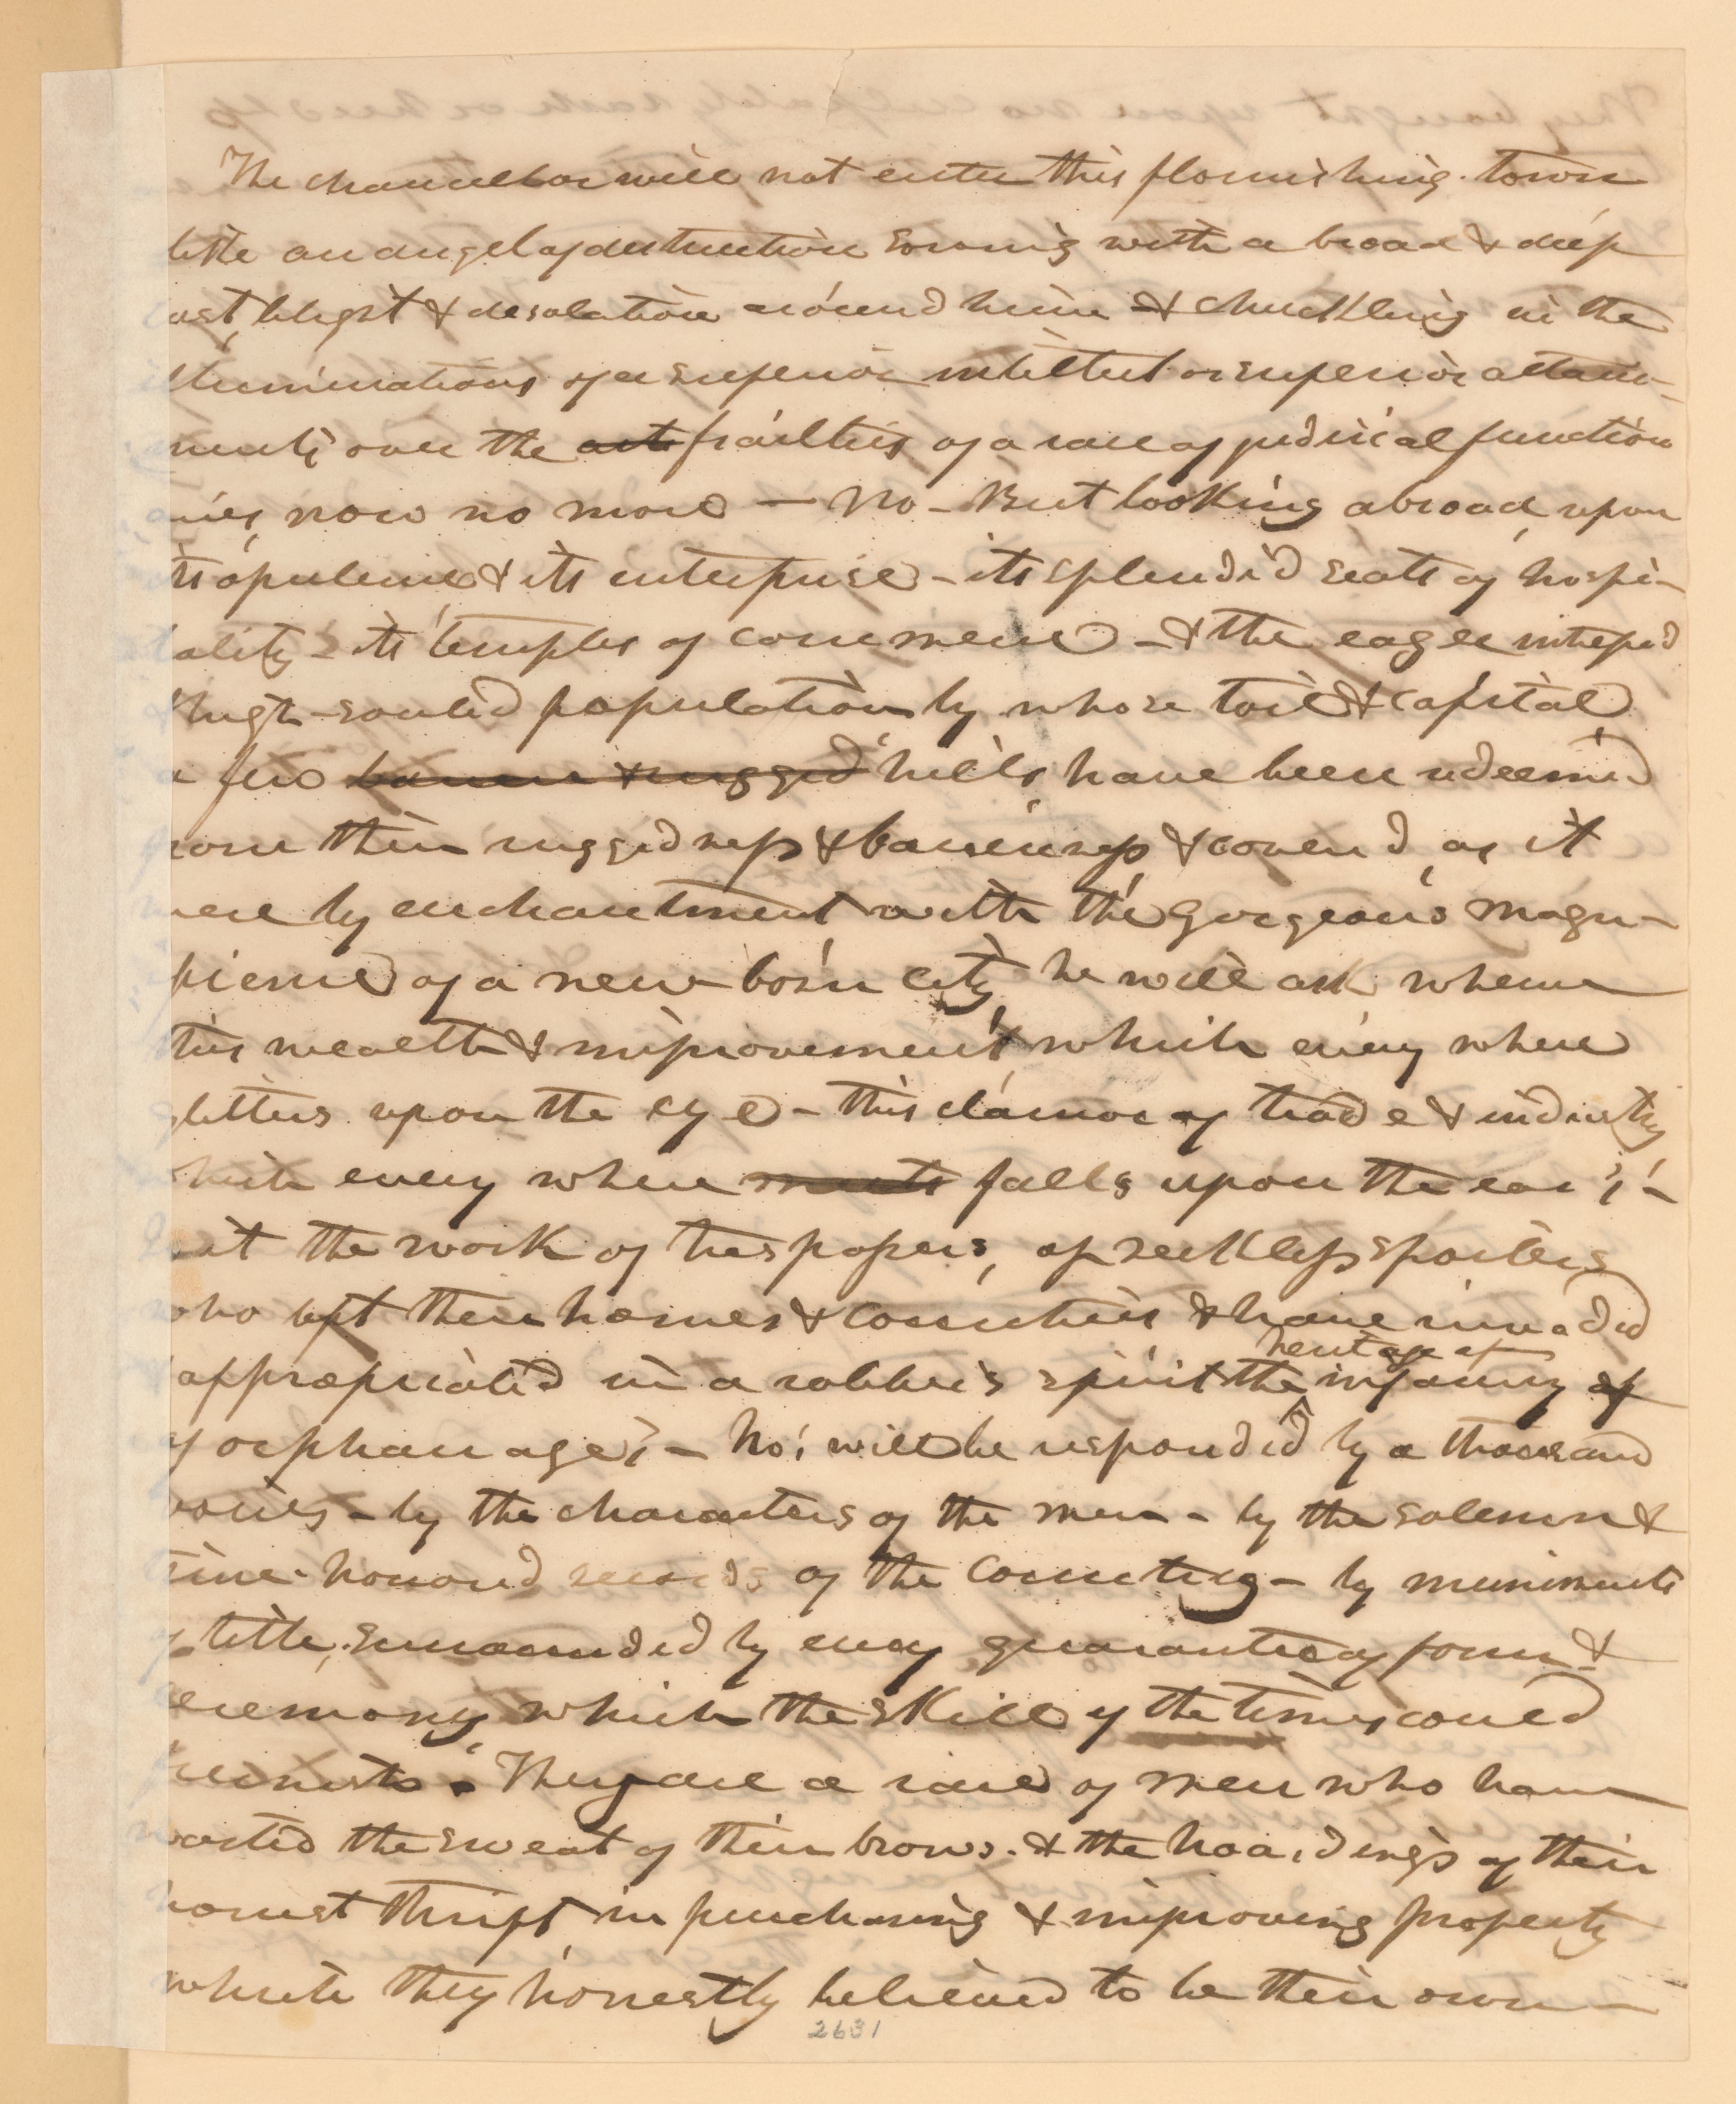 The chancellor will not enter this flourishing town
like an angel of destruction sowing with a broad & deep
cast, blight & desolation around him & chuckling in the
illuminations of a superior intellect or superior attain-
ments over the ~~acts~~ frailties of a race of judicial function
aries, now no more — No - But looking abroad, upon
its opulence & its enterprise - its splendid seats of hospi-
tality - its temples of commerce - & the eager intrepid
& high-souled population by whose toil & capital
a few ~~barren & rugged~~ hills have been redeemed
from their ruggedness & barrenness & covered, as it
were by enchantment with the gorgeous magni-
ficence of a new-born city, he will ask whence
this wealth & improvement which every where
glitters upon the eye - this clamor of trade & industry
which every where ~~meets~~ falls upon the ear? -
Is it the work of trespassers, of reckless spoilers
who left their homes & countries & have invaded
heritage of
& appropriated in a robber's spirit the infancy ~~of~~
of orphanage? - No! will be responded by a thousand
voices - by the characters of the men - by the solemn &
time-honored records of the country - by muniments
of title, surrounded by every guarantee of form &
ceremony, which the skill of the times could
They are a race of men who have
wasted the sweat of their brows. & the hoardings of their
honest thrift, in purchasing & improving property
which they honestly believed to be their own —
2631